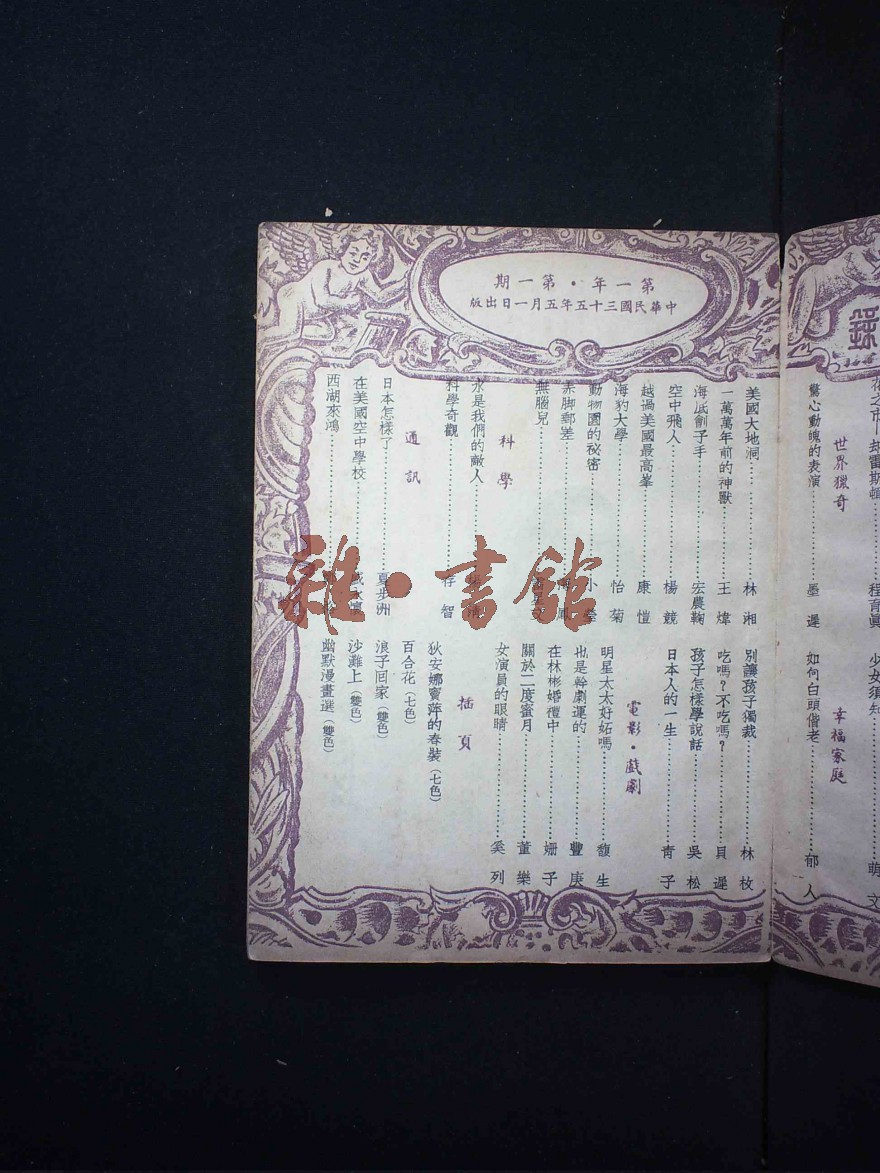 第一年・第一期
中華民國三十五年五月一日出版
錄
程育眞
少女須知
萌文
世界獵奇
幸福家庭
驚心動魄的表演 墨遲
如何白頭偕老 郁人
美國大地洞 林湘
一萬萬年前的神獸 王煒
海底劊子手 宏農鞠
空中飛人 楊競
越過美國最高峯 康愷
海豹大學 怡菊
動物園的秘密 小
赤脚郵差 鳳
無腦兒
科學
水是我們的敵人
科學奇觀 存智
通訊
日本怎樣了 夏步洲
在美國空中學校
西湖來鴻
別讓孩子獨裁 林枚
吃嗎？不吃嗎？ 貝遲
孩子怎樣學說話 吳松
日本人的一生 青子
電影・戲劇
明星太太好妬嗎 馥生
也是幹劇運的 豐庚
在林彬婚禮中 姍子
關於二度蜜月 董樂
女演員的眼睛 奚列
插頁
狄安娜竇萍的春裝（七色）
百合花（七色）
浪子回家（雙色）
沙灘上（雙色）
幽默漫畫選（雙色）
雜・書館